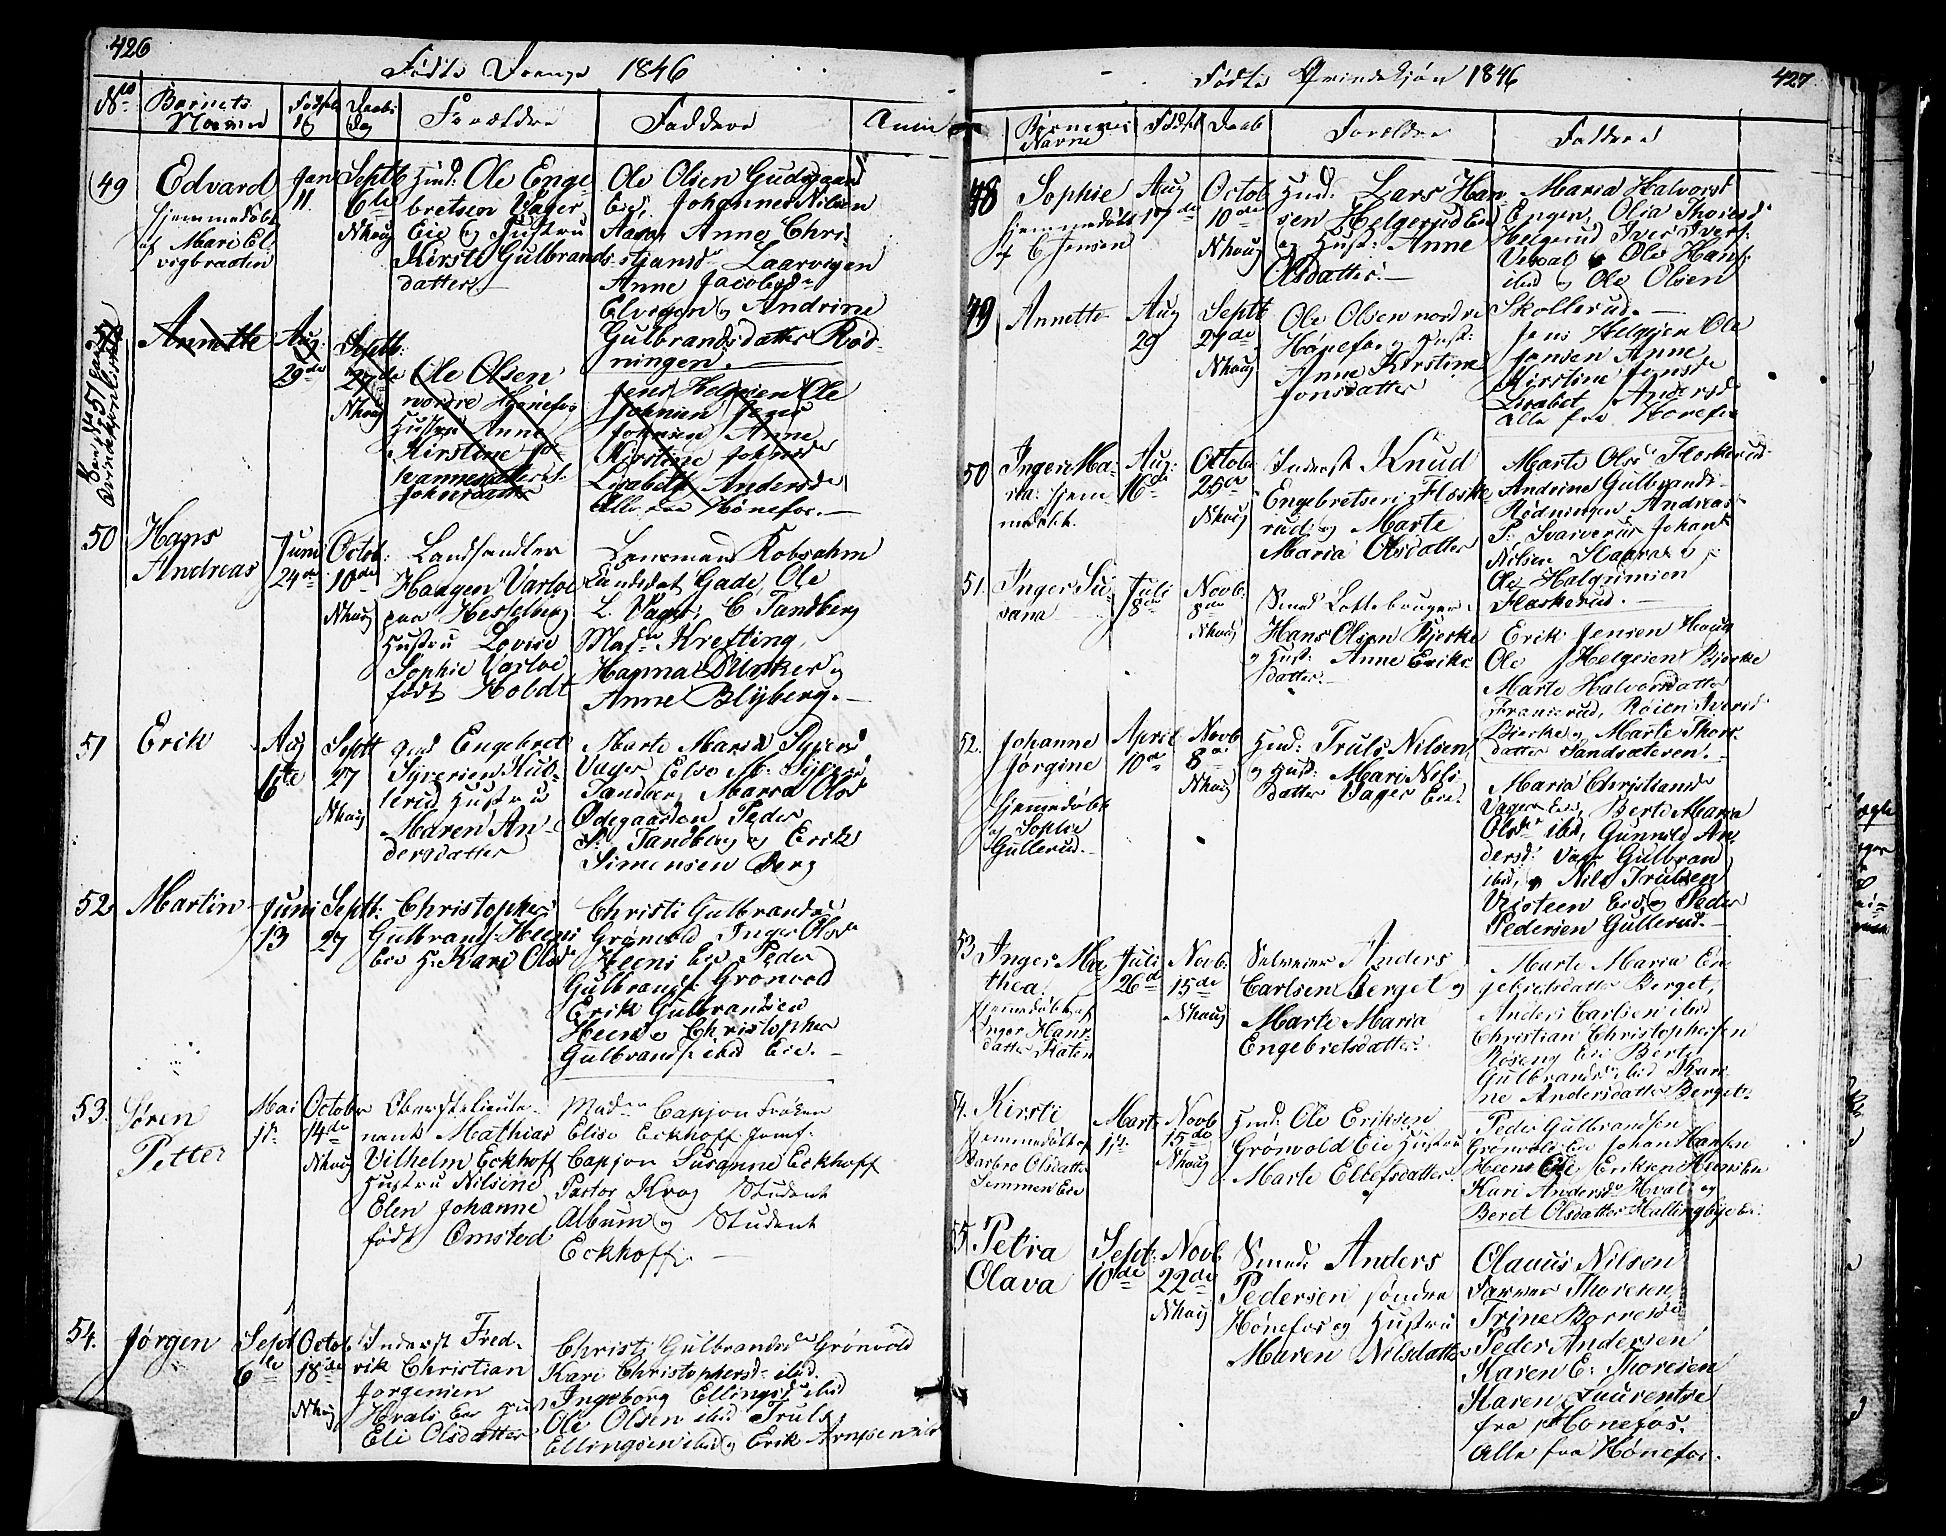 426
Fødte Drenge 1846
No Barnets Navne Fødsels Dag Daabs Dag Forældre Faddere Anm
49 Edvard
hjemmedøbt
af Mari El-
vigbraaten
Jan
11.
Septb
6te
Nhoug
Huusm: Ole Enge-
bretsen Vager
Eie og Hustru
Kirsti Gulbrands-
datter
Ole Olsen Gudsgaard
Eie, Johannes Nilsen
Aanne Chri-
stiansd Laarvigen
Anne Jacobsd
Elvigen og Andrine
Gulbrandsdatter Rød-
ningen.
Annette
Aug
29de
Septb:
27de
Nhoug
Ole Olsen
nordre Hønefos
Hustru Anne
Kirstine Jo-
hannesdatter
Johnsdatter
Jens Helgesen Ole
Johnsen Jens
Johnsen Anne
Kirstine Johnsd
Lisabeth Andersd
Alle fra Hønefos.
50 Hans
Andreas
Juni
24de
Octob:
10de
Nhoug
Landhandler
Haagen Varloe
paa Hesselberg
Hustru Lovise
Sophie Varloe
født Holdt
Lensmand Kobsahm
Candidat Gade, Ole
L. Vager, C Tandberg
Madm Krefting,
Hanna Dunker og
Anne Blyberg.
51 Erik
Aug
6te
Septb
27
Nhoug
Engebret
Syversen Hul-
lerud Hustru
Maren An-
dersdatter
Marte Maria Syversd
Vager Else M: Syversd
Tandberg Maria Olsd
Ødegaarden Peder
P: Tandberg og Erik
Simensen Berg
52 Martin
Juni
13
Septb:
27
Christopher
Gulbrands: Heens
Eie H: Kari Olsd
Christi Gulbrandsd
Grønvold Inger Olsd
Heens Eie Peder
Gulbrands: Grønvold
Erik Gulbrandsen
Heen og Christopher
Gulbrands: ibid Eie.
53. Søren
Petter
Mai
17.
October
14de
Nhoug
Oberstlieute-
nant Mathias
Vilhelm Eckhoff
Hustru Nilsine
Elen Johanne
født Omsted
Madm Capjon Frøken
Elise Eckhoff Jomf:
Capjon Susanne Eckhoff
Pastor Krog Student
Album og Student
Eckhoff.
54. Jørgen
Sept
6te
Octob
18de
Nhoug
Inderst Fred-
rik Christian
Jørgensen
Hvals Eie Hust
Eli Olsdatter
Christi Gulbrandsd Grønvold
Kari Christophersd ibid.
Ingeborg Ellingsd ibid
Ole Olsen ibid Truls
Ellingsen ibid og Erik Arnesen ibid
Fødte Qvindekjøn 1846
427
Børnenes Navne Fødsel Daab Forældre Faddere
48 Sophie
hjemmedøbt
af C Jensen
Aug
17de
Octob
10de
Nhoug
Huusm: Lars Han-
sen Helgerud Eie
og Hust: Anne
Olsdatter.
Maria Halvorsd
Engen, Olia Thoresd
Helgerud Iver Ivers:
Veksal og Ole Hans:
ibid og Ole Olsen
Skollerud.
49 Annette
Aug
29
Septb
27de
Nhoug
Ole Olsen nordre
Hønefos og Hust:
Anne Kirstine
Jonsdatter
Jens Helgesen Ole
Jensen Anne
Kirstine Jensd
Lisabet Andersd
alle fra Hønefos
50 Inger Ma-
ria hjem-
medøbt.
Aug:
16de
Octob
25de
Nhoug
Inderst Knud
Engebretsen Floske-
rud og Marte
Maria Olsdatter
Marte Olsd Floskerud
Andrine Gulbrandsd
Rødningen Andreas
P: Svarverud Johan
Nilsen Skaarud
Ole Halgrimsen
Floskerud.
51. Inger Su-
sana
Juli
8de
Novb.
8de
Nhoug
Smed
Hans Olsen Bjerke
og Hust: Anne Eriks-
datter.
Erik Jensen Houg
Ole Helgesen Bjerke
Marte Halvorsdatter
Iversd
Bjerke og Marte Thors-
datter Sandsæteren.
52. Johanne
Jørgine
hjemmedøbt
af Sophie
Gullerud.
April
10de
Novb
8de
Nhoug
Huusm: Truls Nilsen
og Hust: Mari Nils-
datter Vager Eie.
Maria Christiansd
Vager Eie, Berte Maria
Olsd ibid, Gunnild An-
dersd: Vager Gulbrand
ibid, og Nils Trulsen
Veisteen Eie og Peder
Pedersen Gullerud.
53 Inger Ma-
thea.
hjemmedøbt af
Inger Hans-
datter Flaten
Juli
26de
Novb:
15de
Nhoug
Selveier Anders
Carlsen Berget og
Marte Maria
Engebretsdatter.
Marte Maria En-
gebretsdatter Berget,
Anders Carlsen ibid
Christian Christophersen
Røseng Eie Berte
Gulbrandsd ibid Kari-
ne Andersdatter Berget.
54. Kirsti
hjemmedøbt af
Barbro Olsdatter
Semmen Eie
Marts
17.
Novb
15de
Nhoug
Huusm: Ole Eriksen
Grønvold Eie Hustru
Marte Ellefsdatter.
Peder Gulbrandsen
Grønvold Eie Johan Hansen
Heens Eie Eriksen Heens Eie
Kari Andersd Hval og
Beret Olsdatter Hallingbye Eie.
55. Petra
Olava
Sept:
10de
Novb
22de
Nhoug
Smed Anders
Pedersen søndre
Hønefos og Hustru
Maren Nilsdatter
Olaus Nilsen
Farver Thoresen,
Trine Børresd
Peder Andersen
Karen E: Thoresen
Karen Laurentse
fra Hønefos.
Alle fra Hønefos.